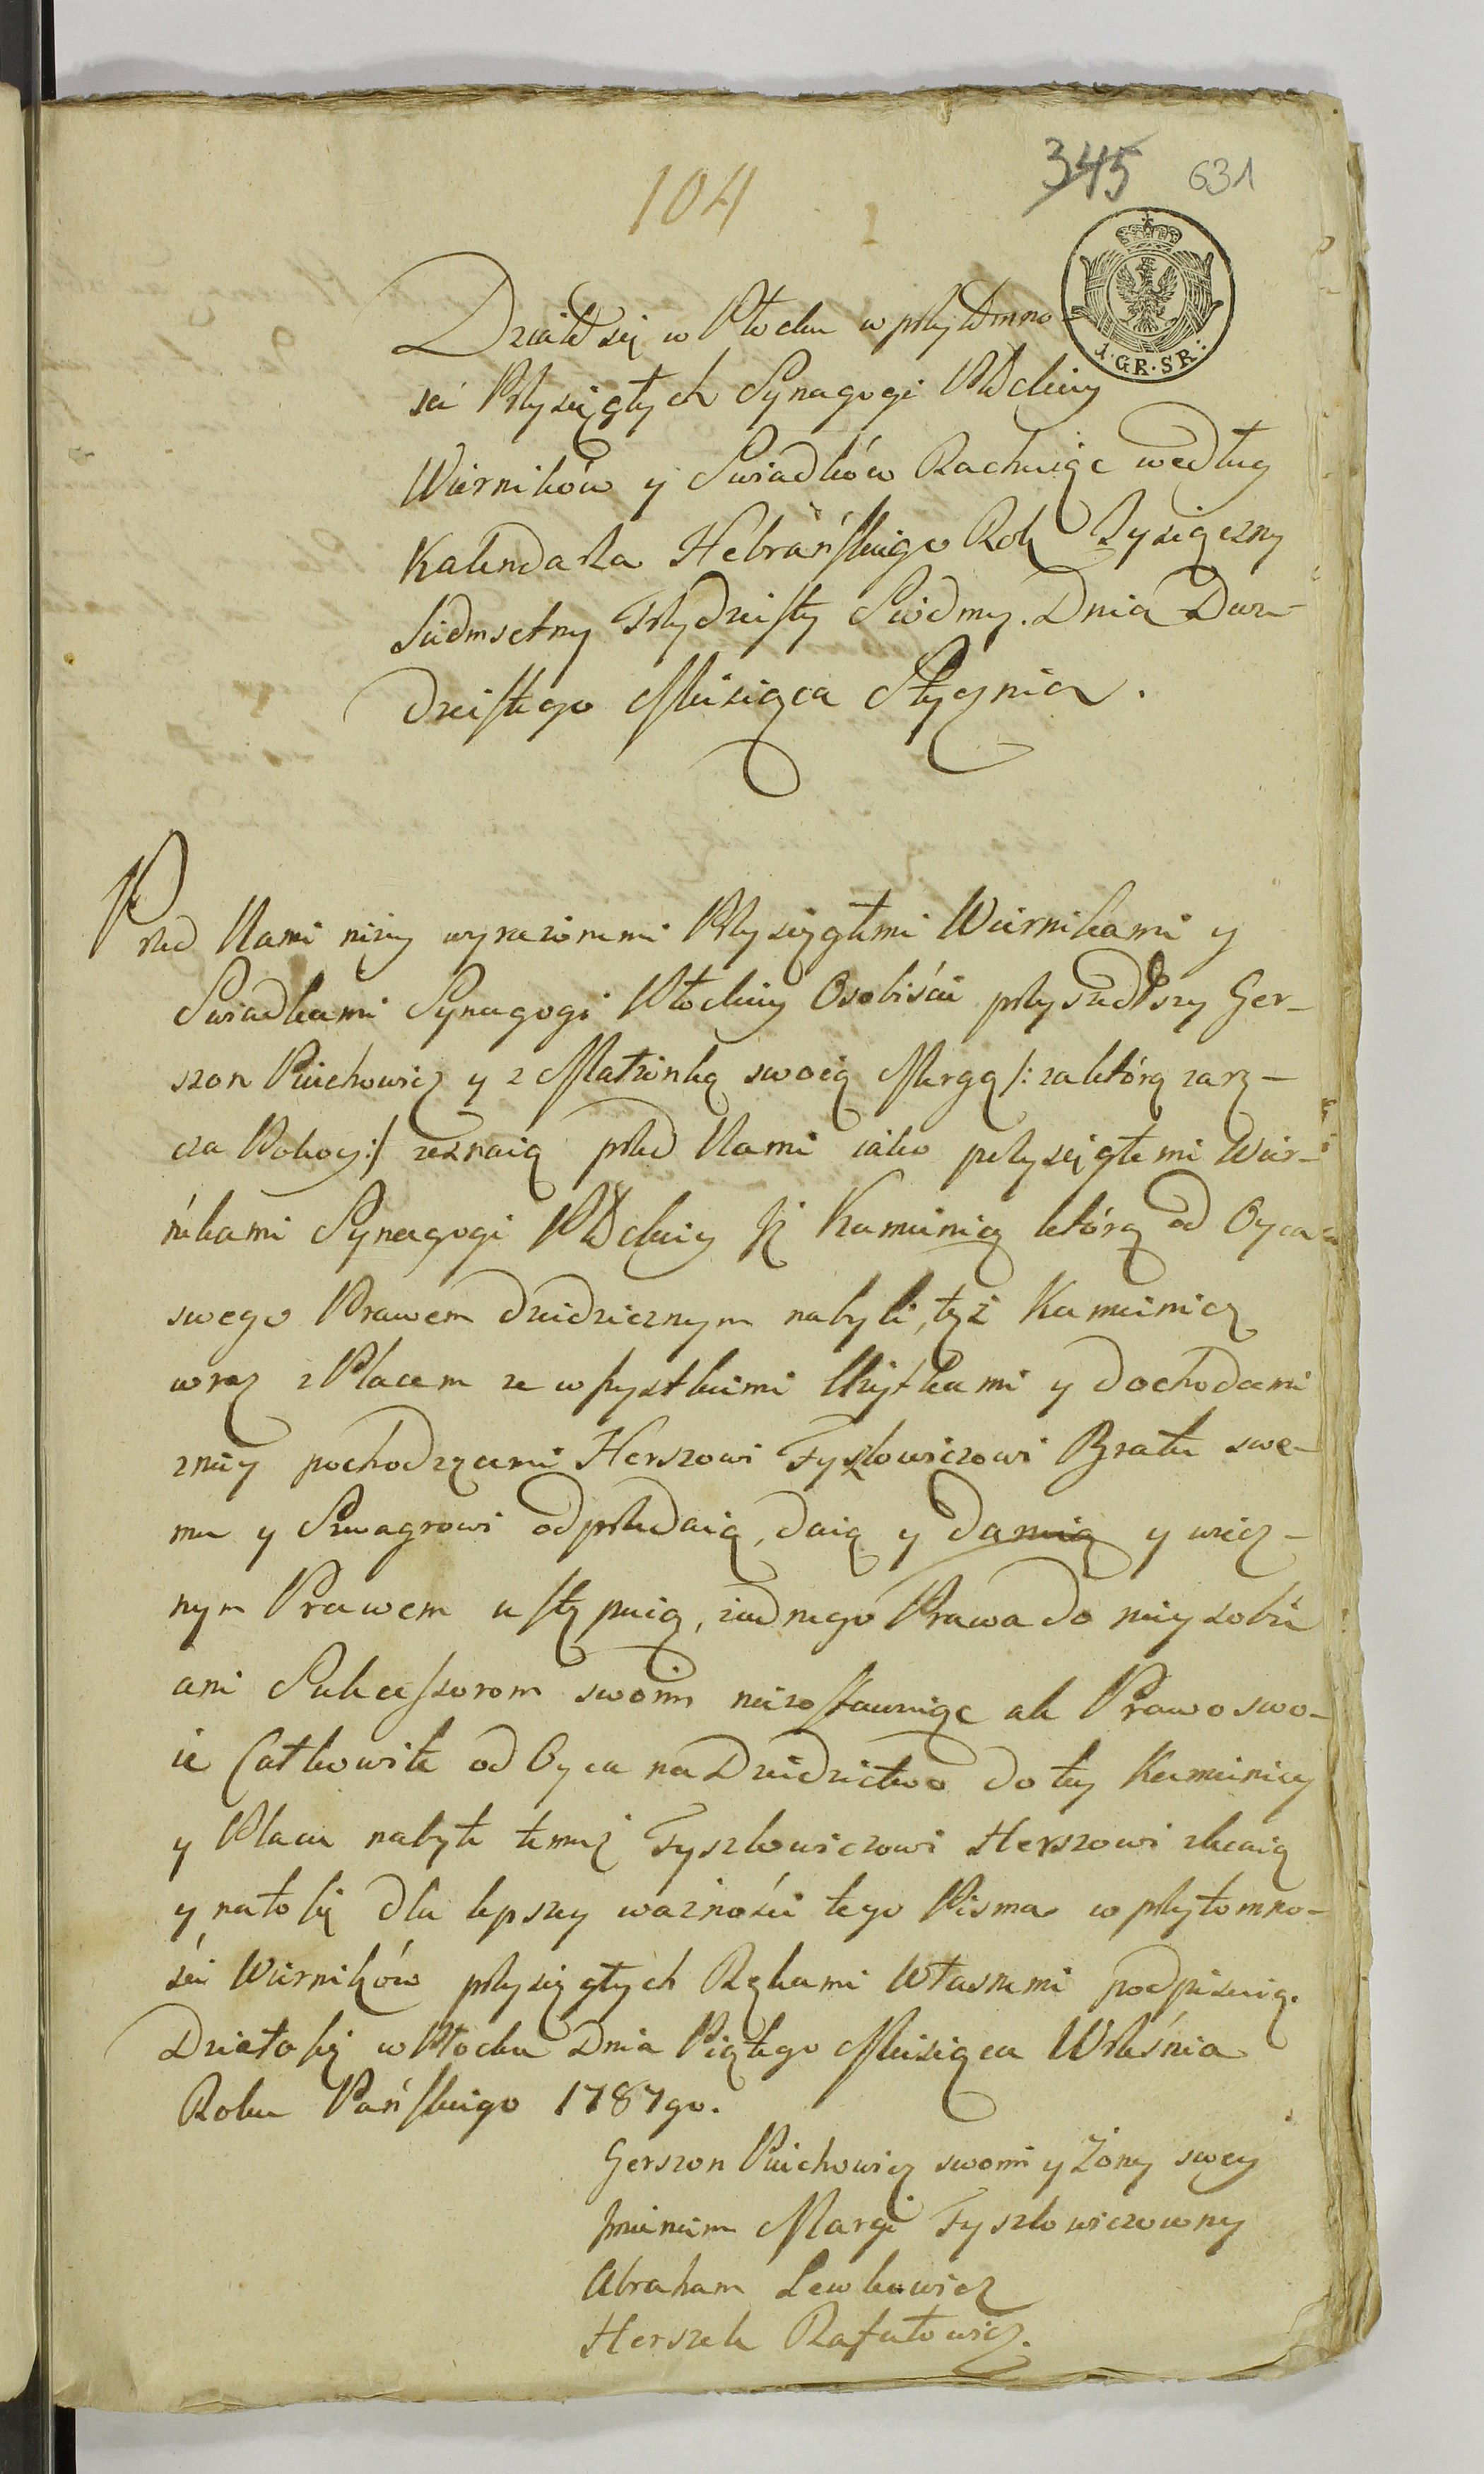 345 631
104
1·GR·SR:
Działo się w Płocku w przytomno-
ści Przysięgłych Synagogi Płockiey
Wiernikow y Swiadkow Rachuiąc według
Kalendarza Hebrańskiego Rok Tysiączny
Siedmsetny Trzydziesty Siodmy. Dnia Dwu-
dziestego Miesiąca Stycznia.
Przed Nami niżey wyrażonemi Przysięgłemi Wiernikami y
Swiadkami Synagogi Płockiey Osobiście przyszedłszy Ger-
szon Pinchowicz y z Małżonką swoią Mergą /: za którą zarę-
cza Pokoy :/ zeznaią przed Nami iako przysięgłemi Wier-
nikami Synagogi Płockiey iż Kamienicę którą od Oyca
swego Prawem dziedzicznym nabyli, tęż Kamienicę
wraz z Placem ze wszystkiemi Użytkami y dochodami
z niey pochodzącemi Herszowi Fyszlowiczowi Bratu swe-
mu y Szwagrowi odprzedaią, daią y daruią y wiecz-
nym Prawem ustępuią, żadnego Prawa do niey sobie
ani Sukcessorom swoim niezostawuiąc ale Prawo swo-
ie Całkowite od Oyca na Dziedzictwo do tey Kamienicy
y Placu nabyte temuż Fyszlowiczowi Herszowi zlecaią
y na to się dla lepszey ważności tego Pisma w przytomno-
ści Wierników przysięgłych Rękami Własnemi podpisuią.
Działo się w Płocku Dnia Piątego Miesiąca Września
Roku Pańskiego 1787go.
Gerszon Pinchowicz swoim y Żony swey
Imieniem Margi Fyszlowiczowny
Abraham Lewkowicz
Herszek Rafałowicz.